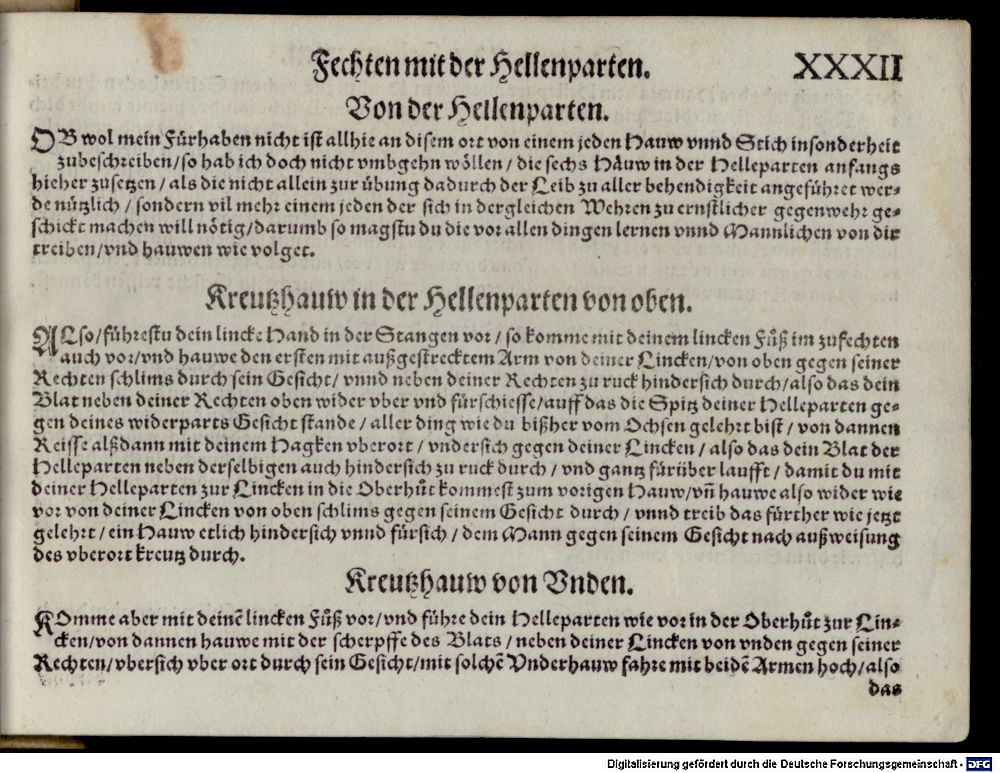 Fechten mit der Hellenparten. XXXII
Von der Hellenparten.
OB wol mein Fürhaben nicht ist allhie an disem ort von einem jeden Hauw vnnd Stich insonderheit
zubeschreiben/ so hab ich doch nicht vmbgehn wöllen / die sechs Häuw in der Helleparten anfangs
hieher zusetzen / als die nicht allein zur übung dadurch der Leib zu aller behendigkeit angeführet wer-
de nützlich / sondern vil mehr einem jeden der sich in dergleichen Wehren zu ernstlicher gegenwehr ge-
schickt machen will nötig/ darumb so magstu du die vor allen dingen lernen vnnd Mannlichen von dir
treiben/ vnd hauwen wie volget.
Kreutzhauw in der Hellenparten von oben.
ALso/ führestu dein lincke Hand in der Stangen vor/ so komme mit deinem lincken Fůß im zufechten
auch vor/ vnd hauwe den ersten mit außgestrecktem Arm von deiner Lincken/ von oben gegen seiner
Rechten schlims durch sein Gesicht/ vnnd neben deiner Rechten zu ruck hindersich durch/ also das dein
Blat neben deiner Rechten oben wider vber vnd fürschiesse/ auff das die Spitz deiner Helleparten ge-
gen deines widerparts Gesicht stande / aller ding wie du bißher vom Ochsen gelehrt bist / von dannen
Reisse alßdann mit deinem Hagken vberort / vndersich gegen deiner Lincken / also das dein Blat der
Helleparten neben derselbigen auch hindersich zu ruck durch / vnd gantz fürüber laufft / damit du mit
deiner Helleparten zur Lincken in die Oberhůt kommest zum vorigen Hauw/ vñ hauwe also wider wie
vor von deiner Lincken von oben schlims gegen seinem Gesicht durch / vnnd treib das fürther wie jetzt
gelehrt / ein Hauw etlich hindersich vnnd fürsich / dem Mann gegen seinem Gesicht nach außweisung
des vberort kreutz durch.
Kreutzhauw von Vnden.
KOmme aber mit deinē lincken Fůß vor/ vnd führe dein Helleparten wie vor in der Oberhůt zur Lin-
cken/ von dannen hauwe mit der scherpffe des Blats / neben deiner Lincken von vnden gegen seiner
Rechten/ vbersich vber ort durch sein Gesicht/ mit solchē Vnderhauw fahre mit beidē Armen hoch/ also
das
Digitalisierung gefördert durch die Deutsche Forschungsgemeinschaft - DFG